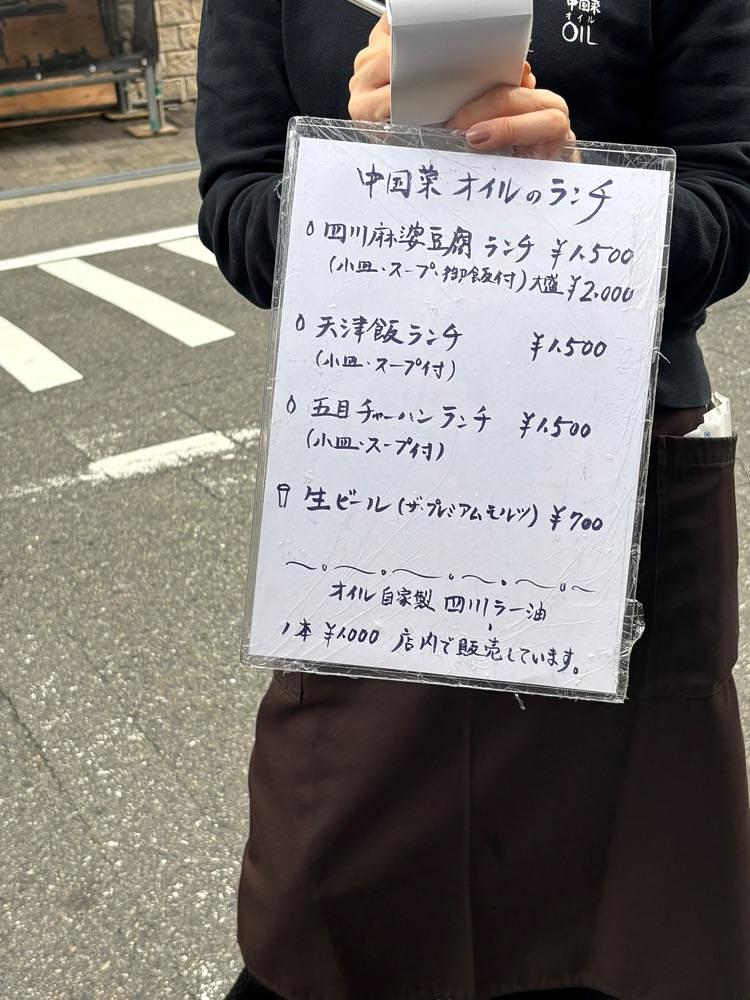 中国菜
オイル
OIL
中国菜 オイルのランチ
四川麻婆豆腐 ランチ ¥1,500
(小皿・スープ・御飯付) 大盛 ¥2,000
天津飯ランチ ¥1,500
(小皿・スープ付)
五目チャーハン ランチ ¥1,500
(小皿・スープ付)
生ビール (ザ・プレミアムモルツ) ¥700
オイル 自家製 四川ラー油
1本 ¥1,000 店内で販売しています。